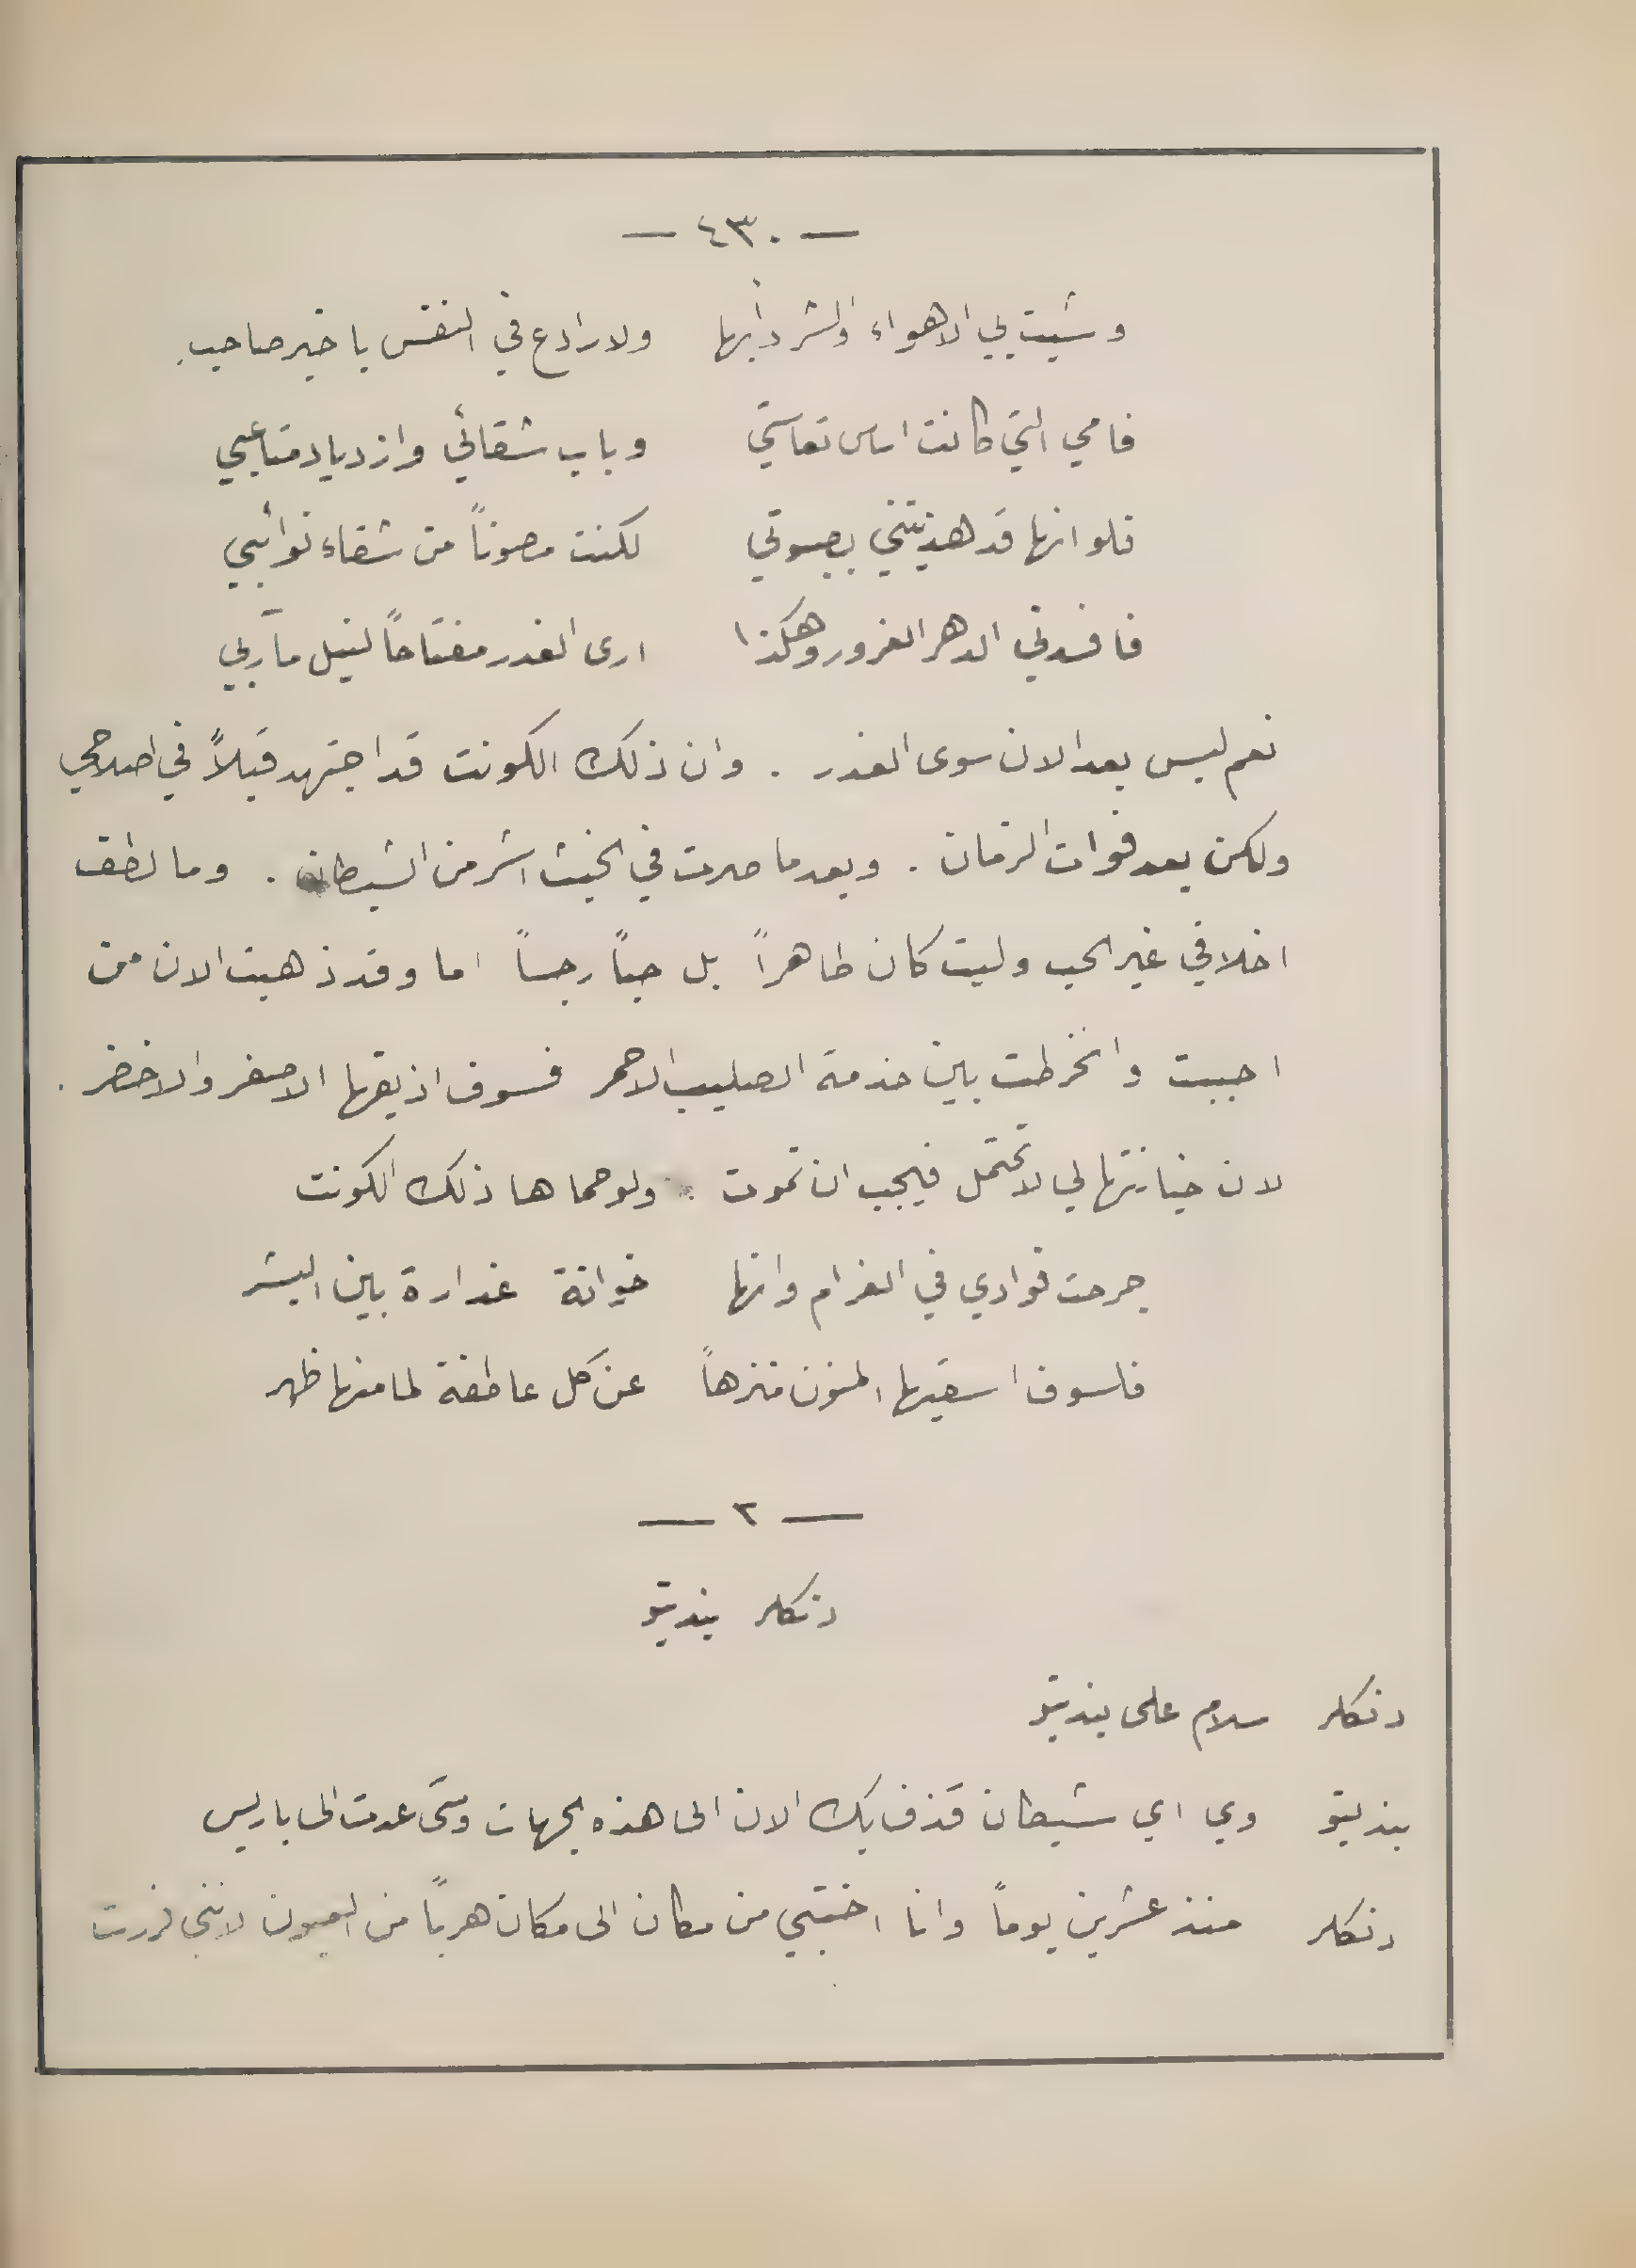 — ٤٣٠ —
وشبت بي الاهواء والشر دأبها ولا رادع في النفس يا خير صاحب
فامي التي كانت اساس تعاستي وباب شقائي وازدياد متاعبي
فلو انها قد هذبتني بصبوتي لكنت مصوناً من شقاء نوائبي
فافسدني الدهر الغرور وهكذا ارى الغدر مفتاحاً لنيل مآربي
نعم ليس بعد الان سوى الغدر . وان ذلك الكونت قد اجتهد قبلاً في اصلاحي
ولكن بعد فوات الزمان . وبعد ما صرت في الخبث اشر من الشيطان . وما لطف
اخلاقي غير الحب وليت كان طاهراً بل حباً رجساً اما وقد ذهبت الان من
احببت وانخرطت بين خدمة الصليب الاحمر فسوف اذيقها الاصفر والاخضر .
لان خيانتها لي لا تحتمل فيجب ان تموت . ولو حماها ذلك الكونت
جرحت فوادي في الغرام وانها خوانة غدارة بين البشر
فلسوف اسقيها المنون منزهاً عن كل عاطفة لما منها ظهر
— ٢ —
دنكلر بندیتو
دنكلر سلام على بنديتو
بنديتو وي اي شيطان قذف بك الان الى هذه الجهات ومتى عدت الى باريس
دنكلر منذ عشرين يوماً وانا اختبي من مكان الى مكان هرباً من العيون لانني فررت